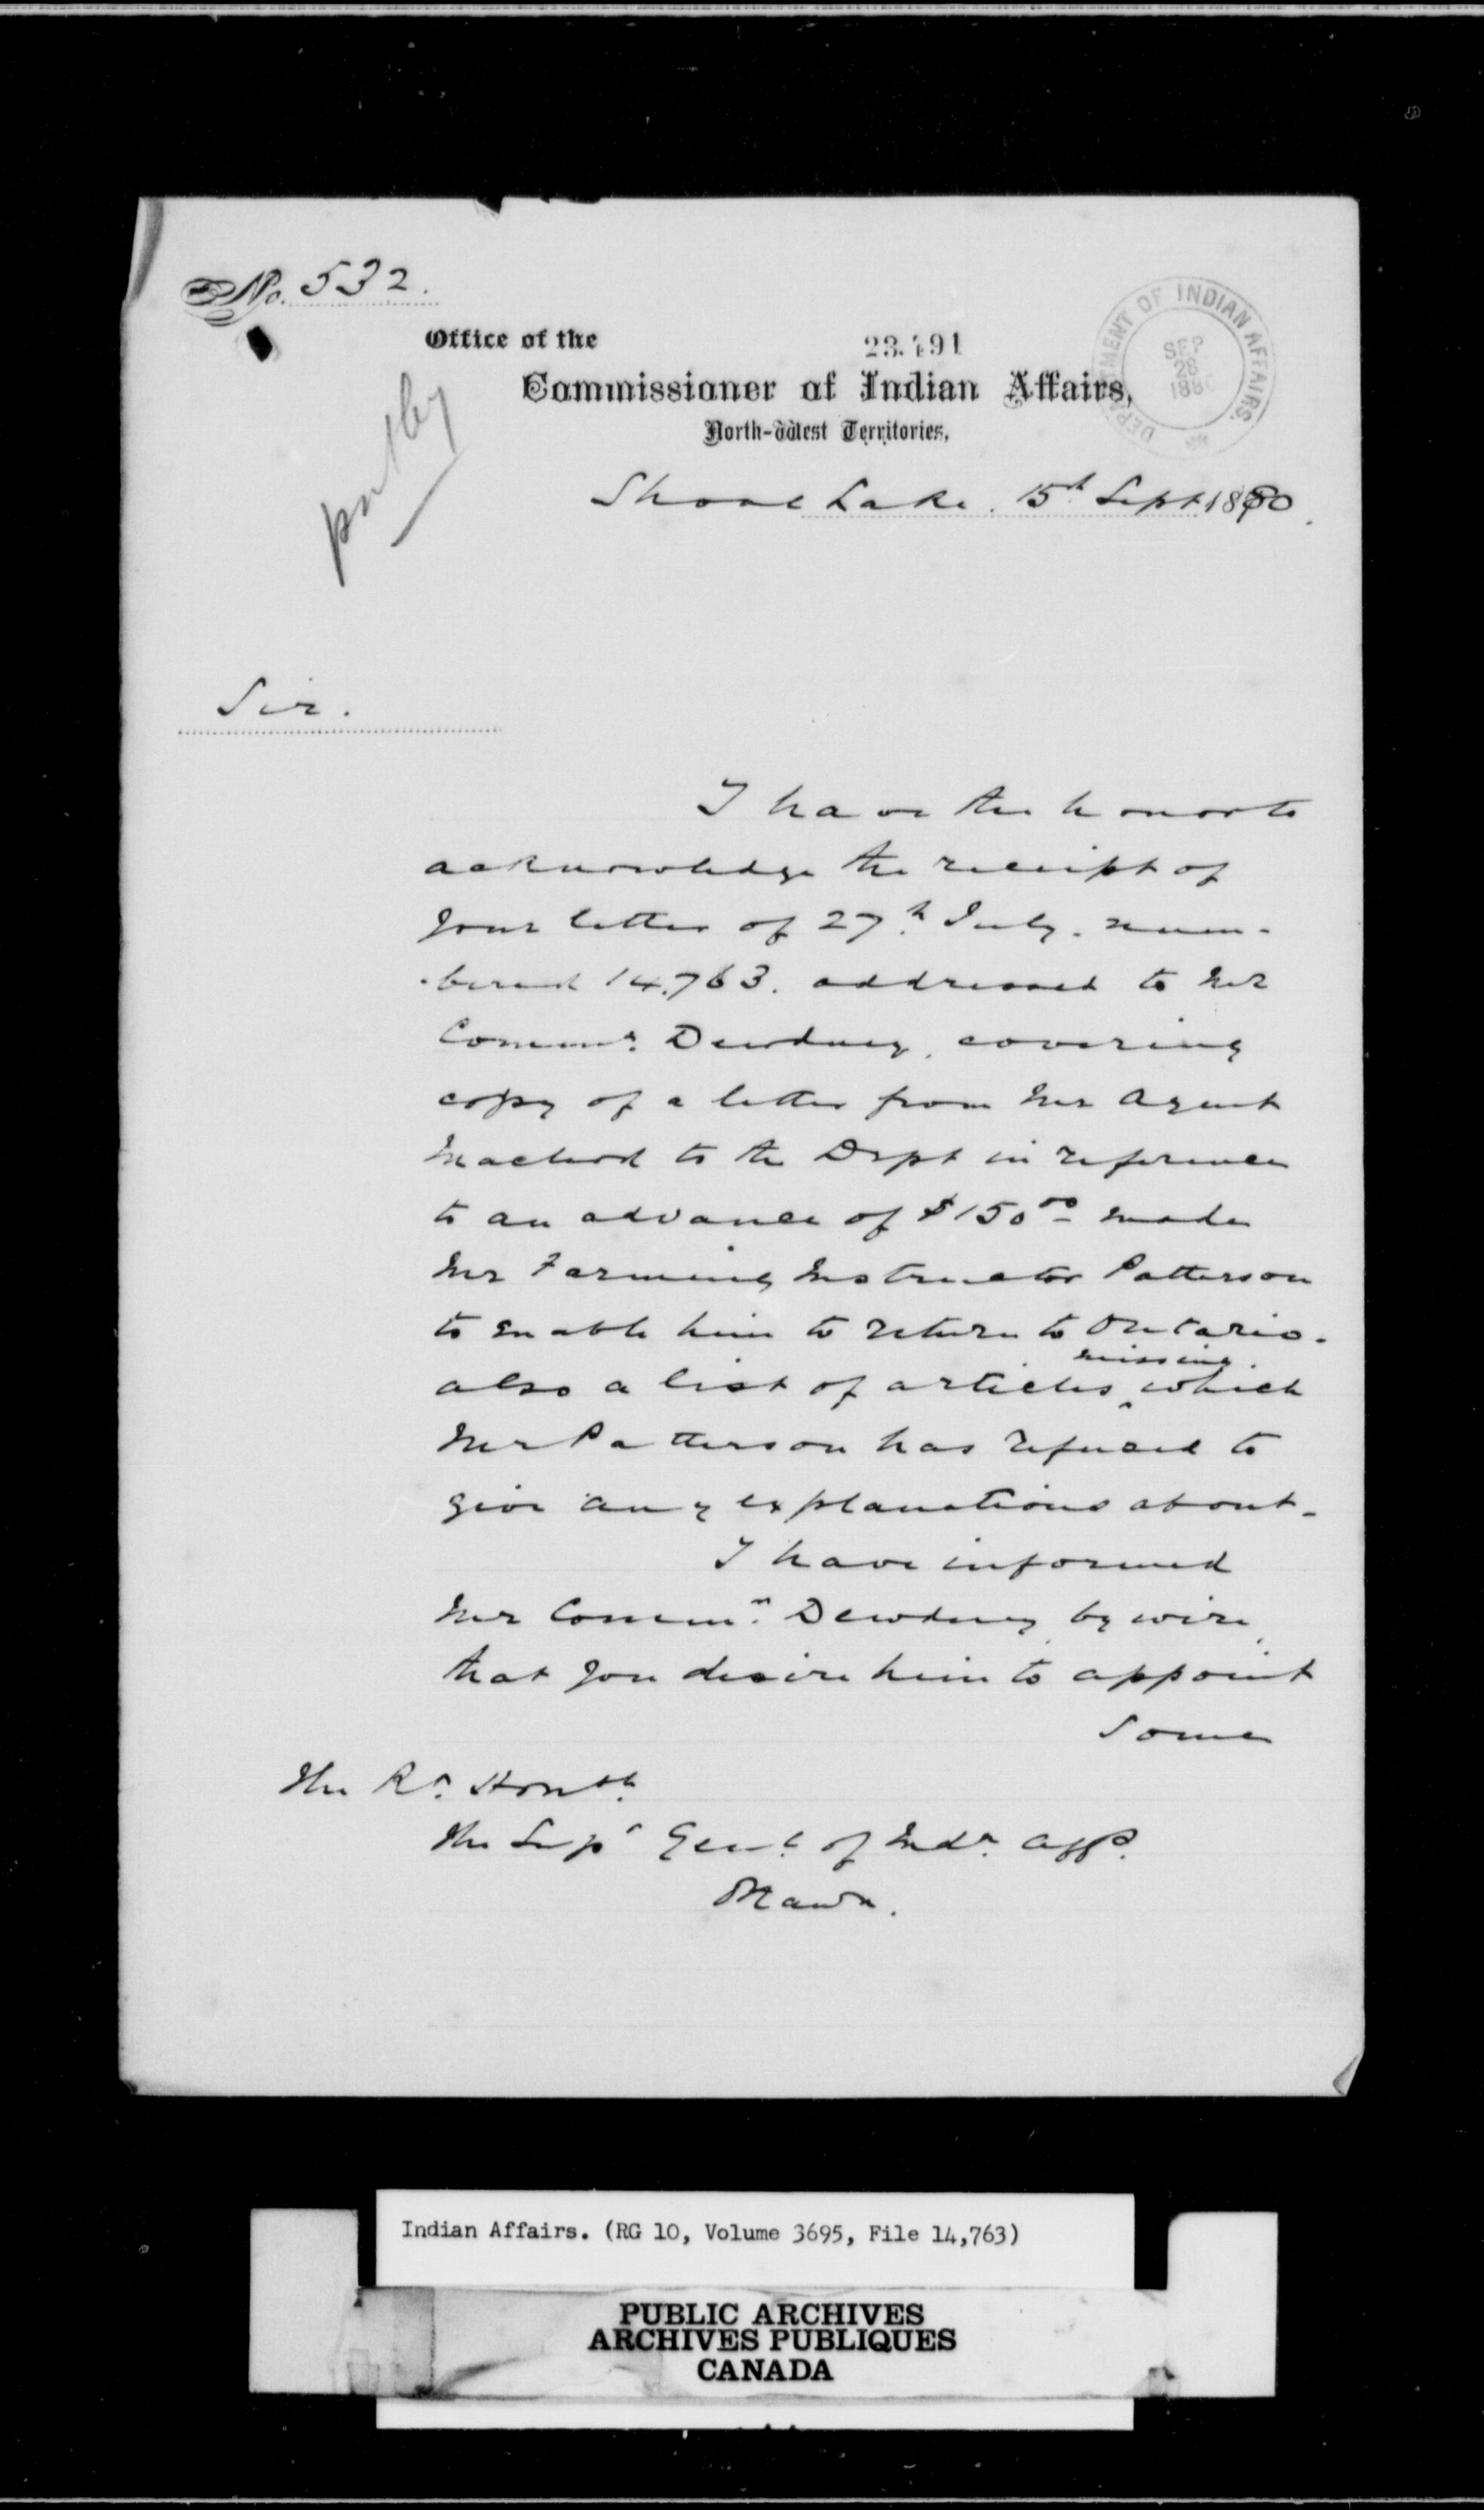 No. 532.
Office of the
23.491
Commissioner of Indian Affairs,
North-West Territories,
DEPARTMENT OF INDIAN AFFAIRS.
SEP
28
1880
Shoal Lake. 15th Sept. 1880.
Sir.
I have the honor to
acknowledge the receipt of
your letter of 27th July. num-
-bered 14.763. addressed to Mr
Commr. Dewdney, covering
copy of a letter from Mr Agent
Macleod to the Dept in reference
to an advance of $150 00 made
Mr Farming Instructor Patterson
to enable him to return to Ontario.
also a list of articles missing. which
Mr Patterson has refused to
give any explanations about.
I have informed
Mr Commr. Dewdney by wire,
that you desire him to appoint
some
The Rt. Honble.
The Supt Genl. of Indn. Affs.
Ottawa.
Indian Affairs. (RG 10, Volume 3695, File 14,763)
PUBLIC ARCHIVES
ARCHIVES PUBLIQUES
CANADA